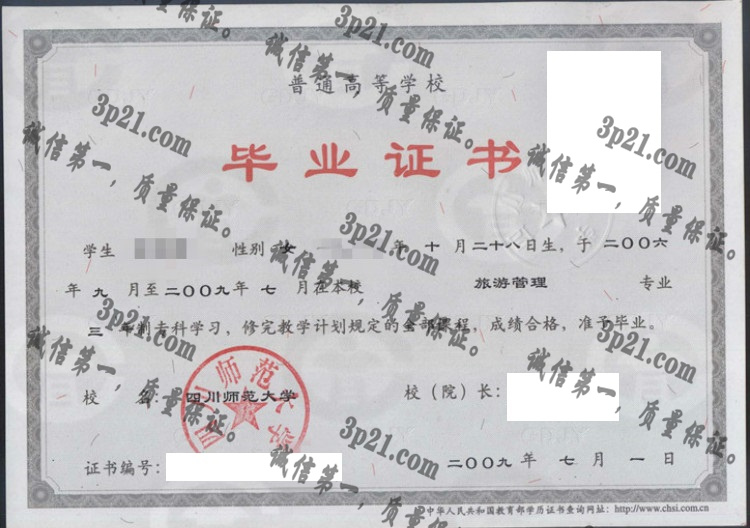 普通高等学校
毕业证书
学生 性别 女 年 十 月二十八日生，于 二〇〇六
年 九 月至 二〇〇九 年 七 月在本校 旅游管理 专业
三 年制专科学习，修完教学计划规定的全部课程，成绩合格，准予毕业。
校 名：四川师范大学 校（院）长：
证书编号： 二〇〇九 年 七 月 一 日
中华人民共和国教育部学历证书查询网址：http://www.chsi.com.cn
3p21.com
诚信第一，质量保证。
3p21.com
诚信第一，质量保证。
3p21.com
诚信第一，质量保证。
3p21.com
诚信第一，质量保证。
3p21.com
诚信第一，质量保证。
3p21.com
诚信第一，质量保证。
3p21.com
诚信第一，质量保证。
质量保证。